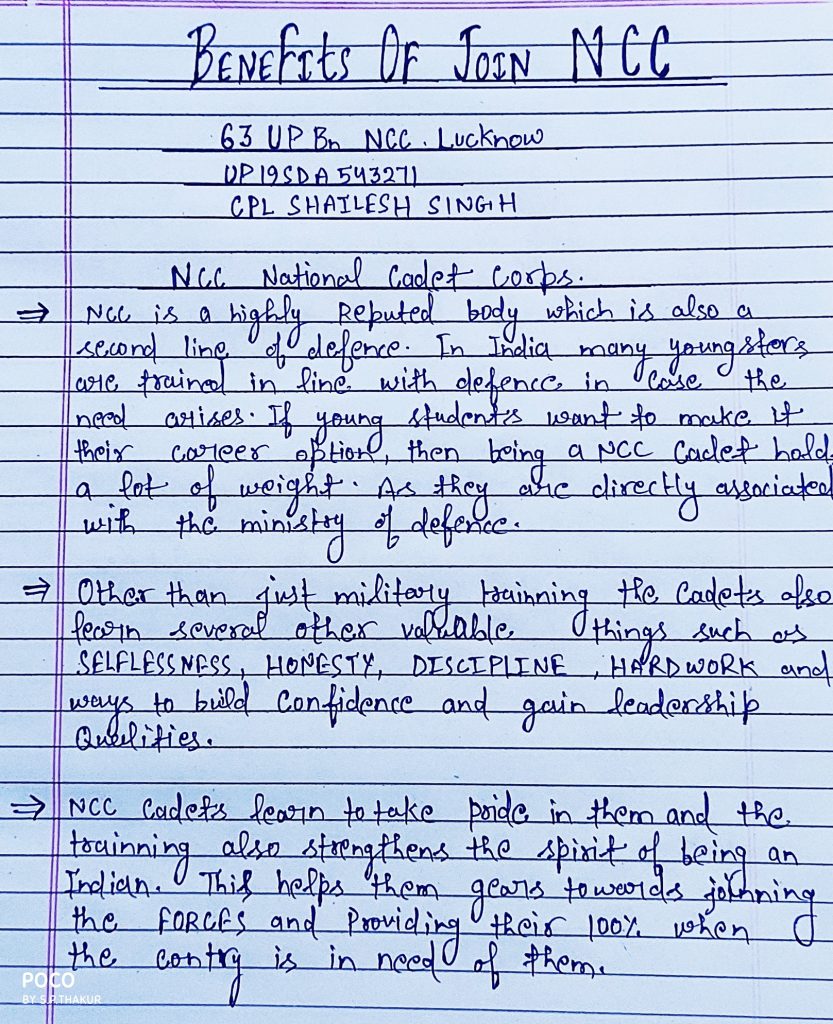 BENEFITS OF JOIN NCC
63 UP Bn NCC. Lucknow
UP19SDA543271
CPL SHAILESH SINGH
NCC National Cadet Corps.
⇒ NCC is a highly Reputed body which is also a
second line of defence. In India many youngsters
are trained in line with defence in case the
need arises. If young students want to make it
their career option, then being a NCC Cadet hold
a lot of weight. As they are directly associated
with the ministry of defence.
⇒ Other than just military trainning the Cadets also
learn several other valuable things such as
SELFLESSNESS, HONESTY, DISCIPLINE, HARDWORK and
ways to build Confidence and gain leadership
Qualities.
⇒ NCC Cadets learn to take pride in them and the
trainning also strengthens the spirit of being an
Indian. This helps them gears towards joinning
the FORCES and Providing their 100% when
the contry is in need of them.
POCO
BY S.P.THAKUR